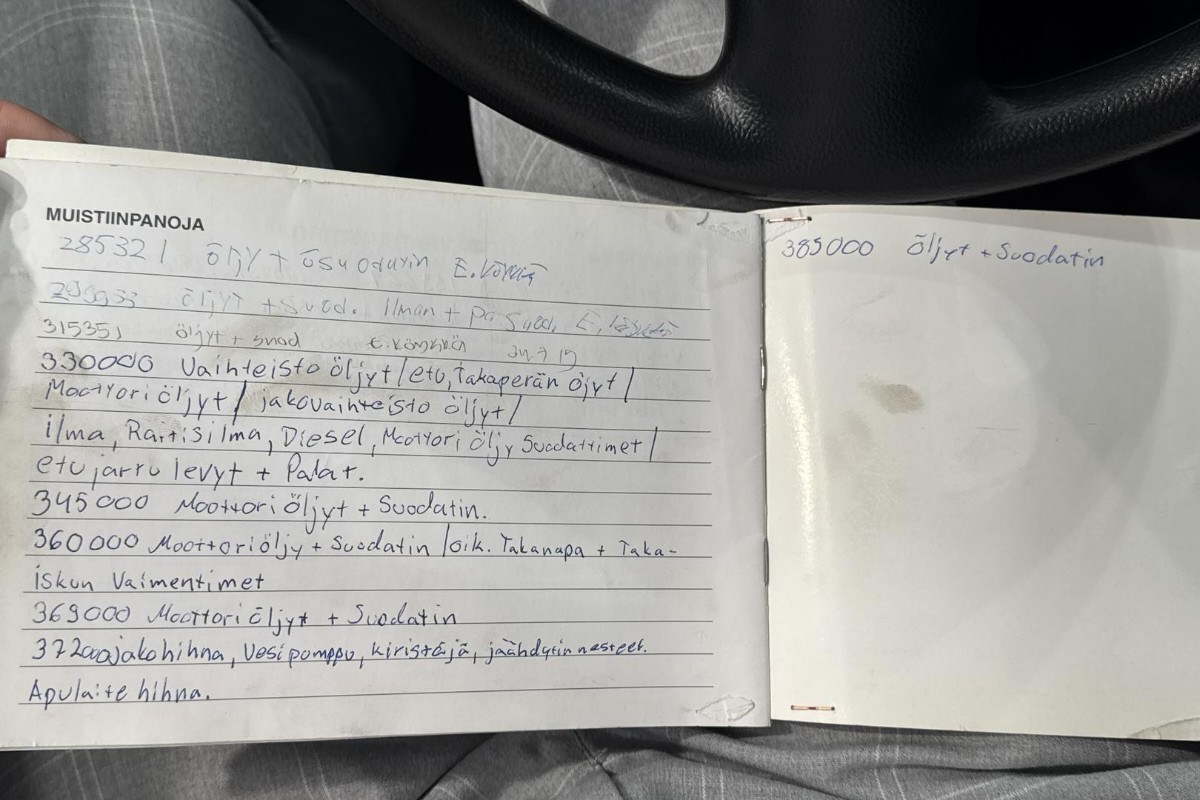 MUISTIINPANOJA
285321 öljy + ösuodatin
öljyt + suod. Ilman +
315351 öljyt + suod
330000 Vaihteisto öljyt/etu, Takaperän öjyt/
Moottori öljyt/ jakovaihteisto öljyt/
ilma, Raitisilma, Diesel, Moottori öljy Suodattimet/
etujarru levyt + Palat.
345000 Moottori öljyt + Suodatin.
360000 Moottoriöljy + Suodatin/oik. Takanapa + Taka-
iskun Vaimentimet
369000 Moottori öljyt + Suodatin
372000 jakohihna, Vesipomppu, kiristäjä, jäähdytinnesteet.
Apulaite hihna.
385000 öljyt + Suodatin